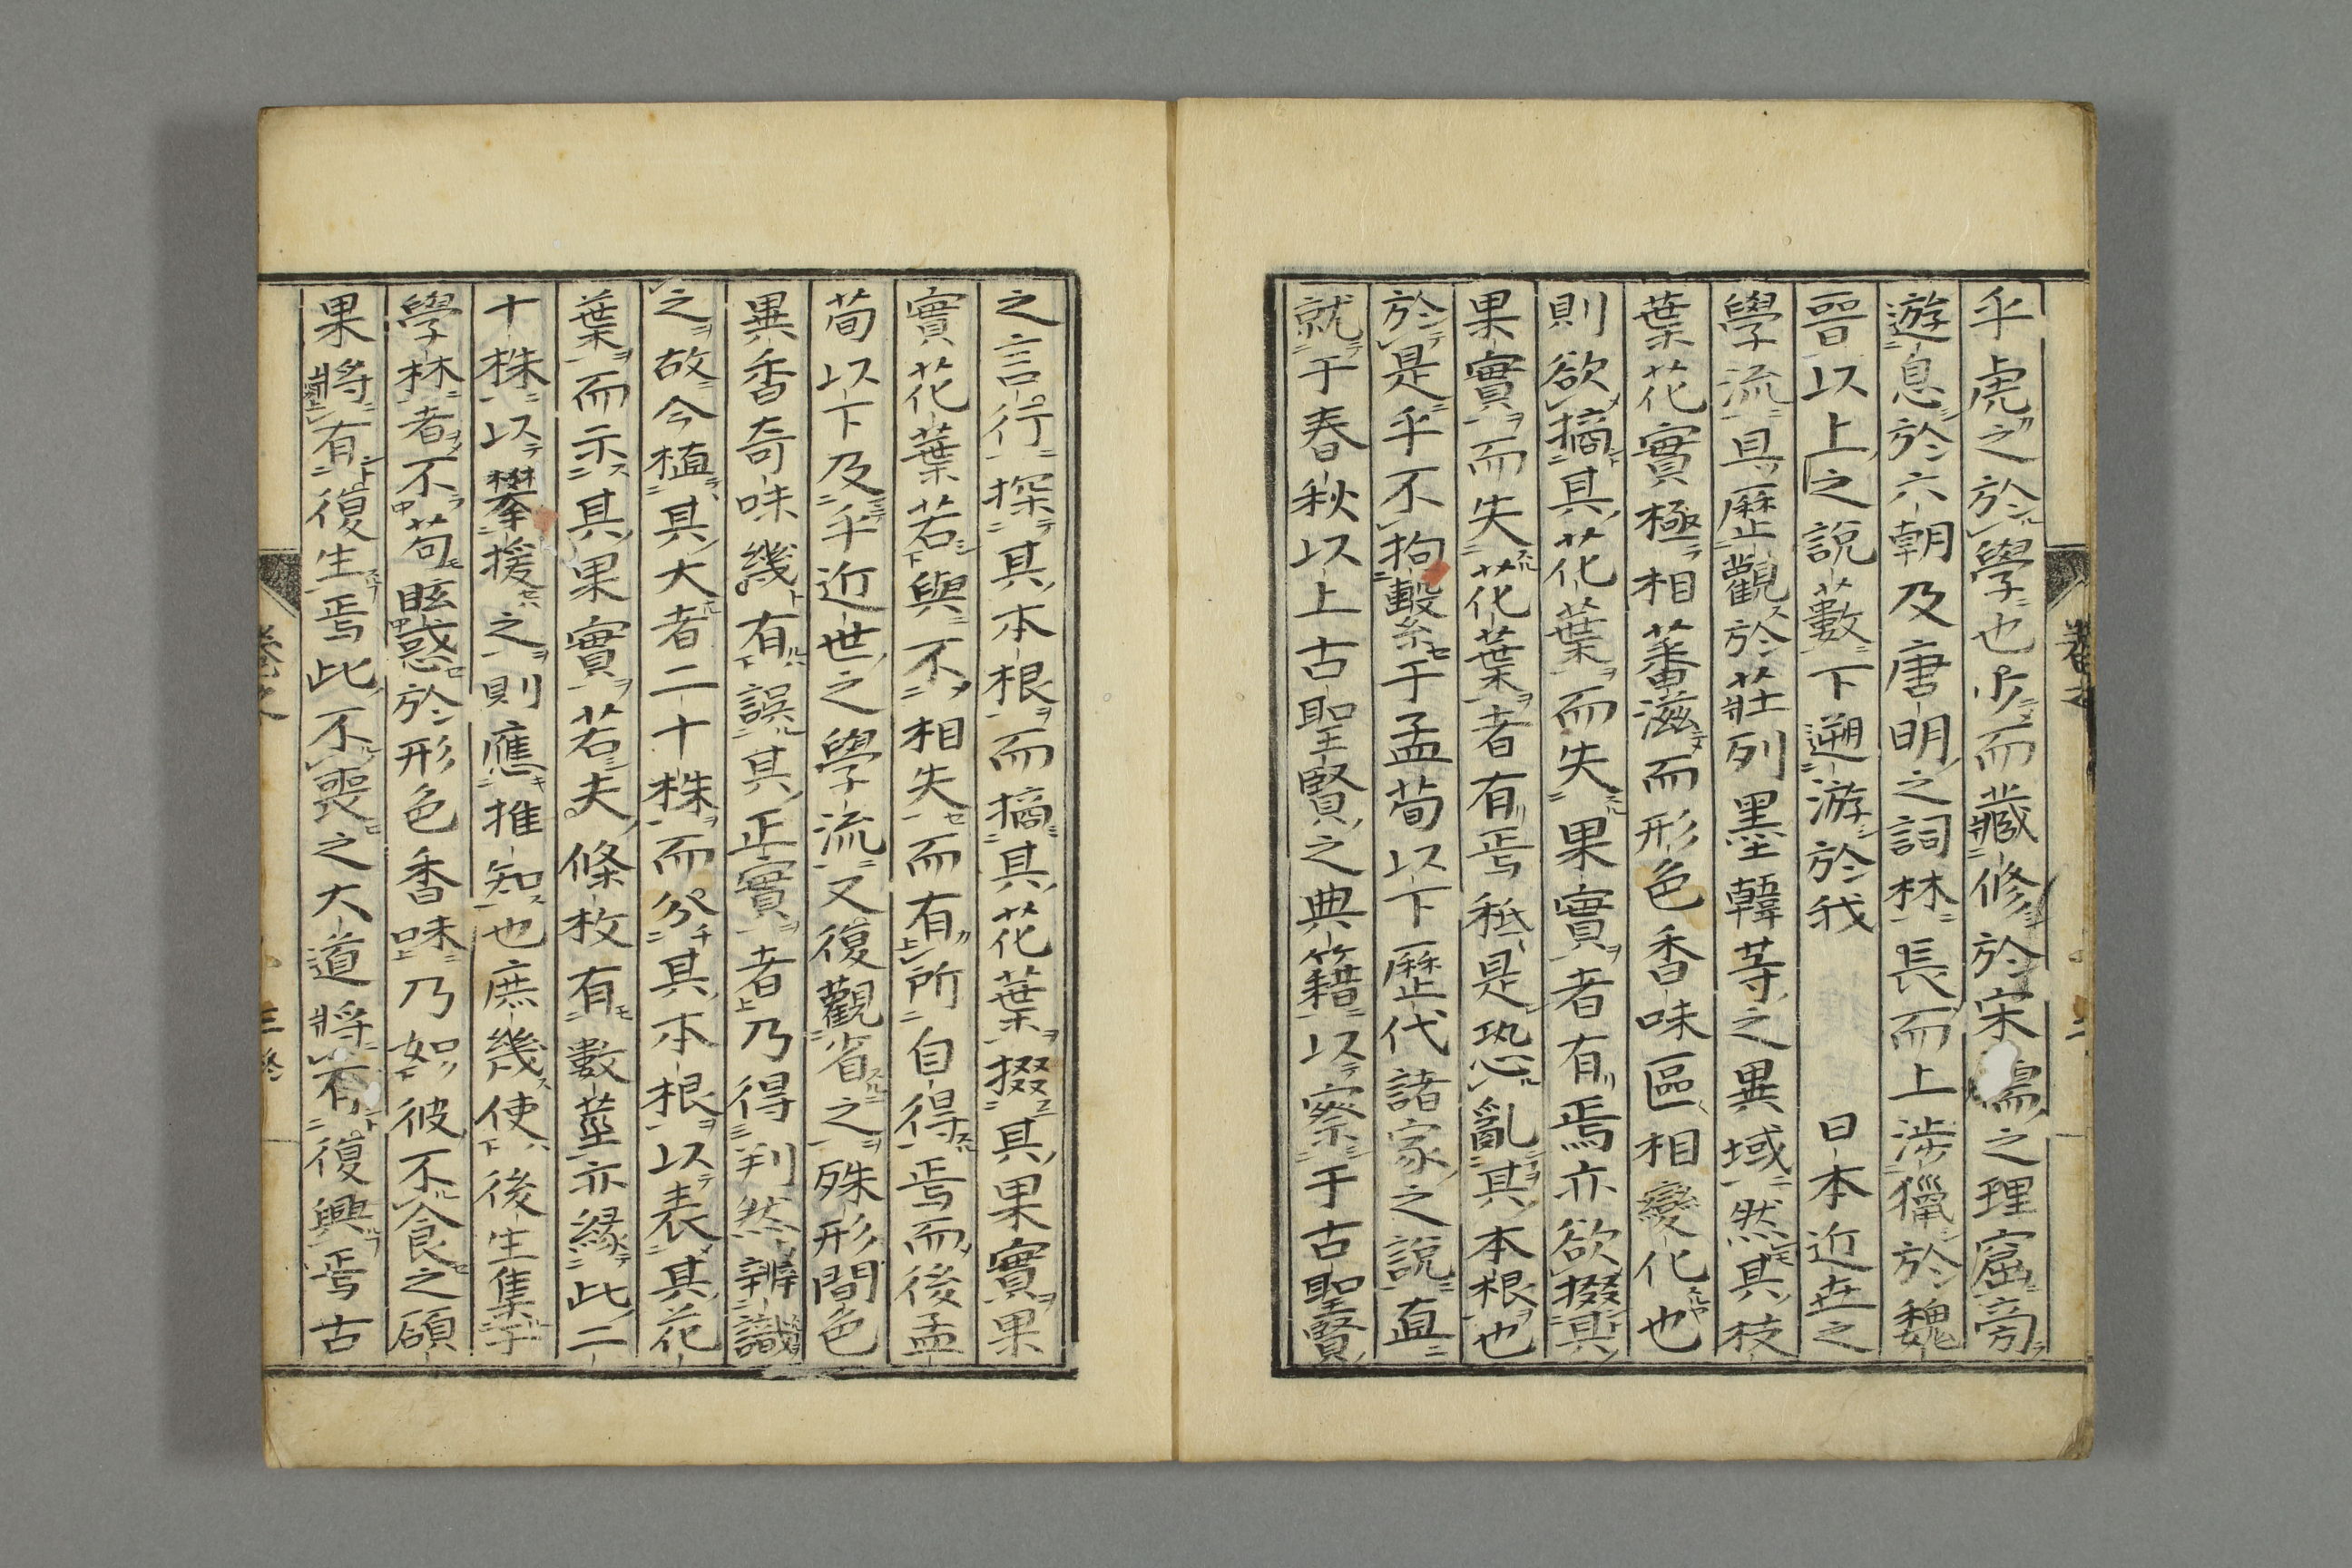 乎虎之於學也少而藏修於宋儒之理窟旁
遊息於六朝及唐明之詞林長而上涉獵於魏
晋以上之說藪下遡游於我　日本近世之
學流且歷觀於莊列墨韓等之異域然其枝
葉花實極相蕃滋而形色香味區相變化也
則欲摘其花葉而失果實者有焉亦欲掇其
果實而失花葉者有焉秖是恐亂其本根也
於是乎不拘繫于孟荀以下歷代諸家之說直
就于春秋以上古聖賢之典籍以察于古聖賢
之言行探其本根而摘其花葉掇其果實果
實花葉若與不相失而有所自得焉而後孟
荀以下及乎近世之學流又復觀省之殊形間色
異香奇味幾有誤其正實者乃得判然辨識
之故今植其大者二十株而分其本根以表其花
葉而示其果實若夫條枚有數莖亦緣此二
十株以攀援之則應推知也庶幾使後生集于
學林者不苟眩惑於形色香味乃恕彼不食之碩
果將有復生焉此不喪之大道將有復興焉古